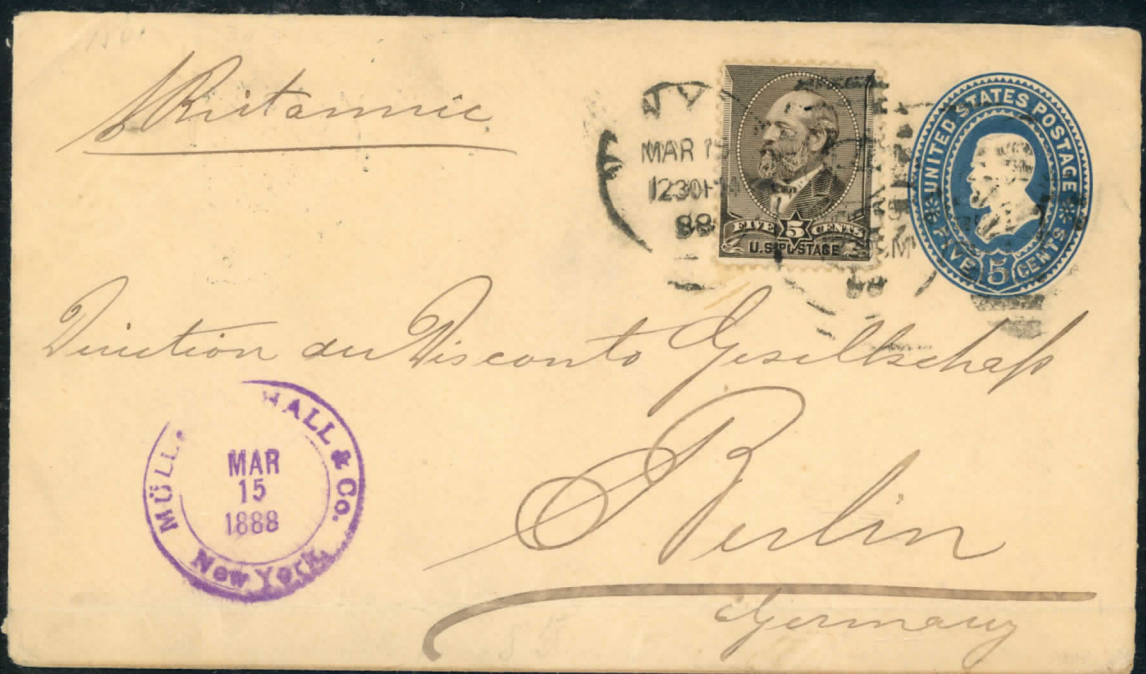 Britannic
N Y
MAR 15
1230PM
88
FIVE 5 CENTS
U.S. POSTAGE
UNITED STATES POSTAGE
FIVE 5 CENTS
Direction der Disconto Gesellschaft
Berlin
Germany
MÜLL HALL & Co.
MAR
15
1888
New York.